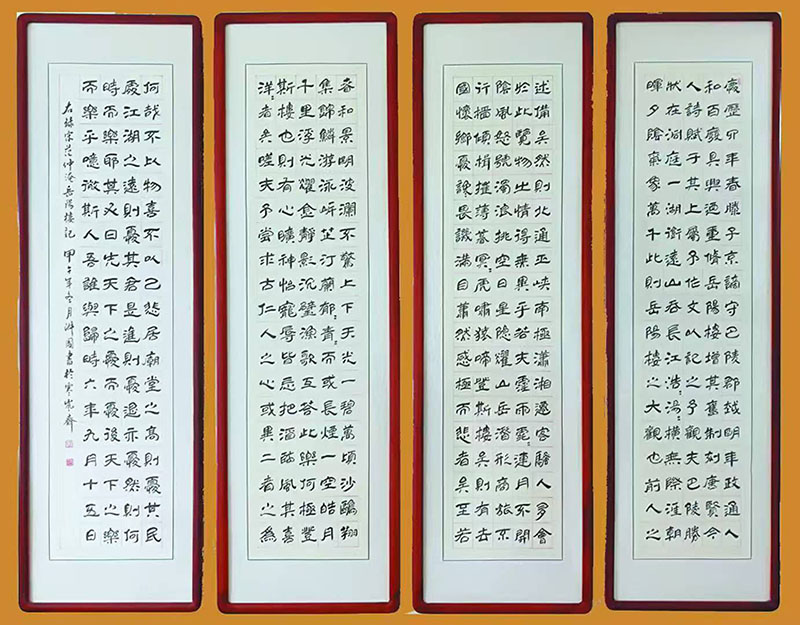 慶歷四年春滕子京謫守巴陵郡越明年政通人
和百廢具興迺重脩岳陽樓增其舊制刻唐賢今
人詩賦于其上屬予作文以記之予觀夫巴陵勝
狀在洞庭一湖銜遠山吞長江浩〻湯〻橫無際涯朝
暉夕陰氣象萬千此則岳陽樓之大觀也前人之
述備矣然則北通巫峽南極瀟湘遷客騷人多會
於此覽物之情得無異乎若夫霪雨霏〻連月不開
陰風怒號濁浪排空日星隱耀山岳潛形商旅不
行檣傾楫摧薄暮冥〻虎嘯猿啼登斯樓矣則有去
國懷鄉憂讒畏譏滿目蕭然感極而悲者矣至若
春和景明波瀾不驚上下天光一碧萬頃沙鷗翔
集錦鱗游泳岸芷汀蘭郁〻青〻而或長煙一空皓月
千里浮光耀金靜影沉璧漁歌互答此樂何極登
斯樓也則有心曠神怡寵辱皆忘把酒臨風其喜
洋〻者矣嗟夫予嘗求古仁人之心或異二者之為
何哉不以物喜不以己悲居廟堂之高則憂其民
處江湖之遠則憂其君是進則憂退亦憂然則何
時而樂耶其必曰先天下之憂而憂後天下之樂
而樂乎噫微斯人吾誰與歸時六年九月十五日
右錄宋范仲淹岳陽樓記 甲午年冬月國書於齋